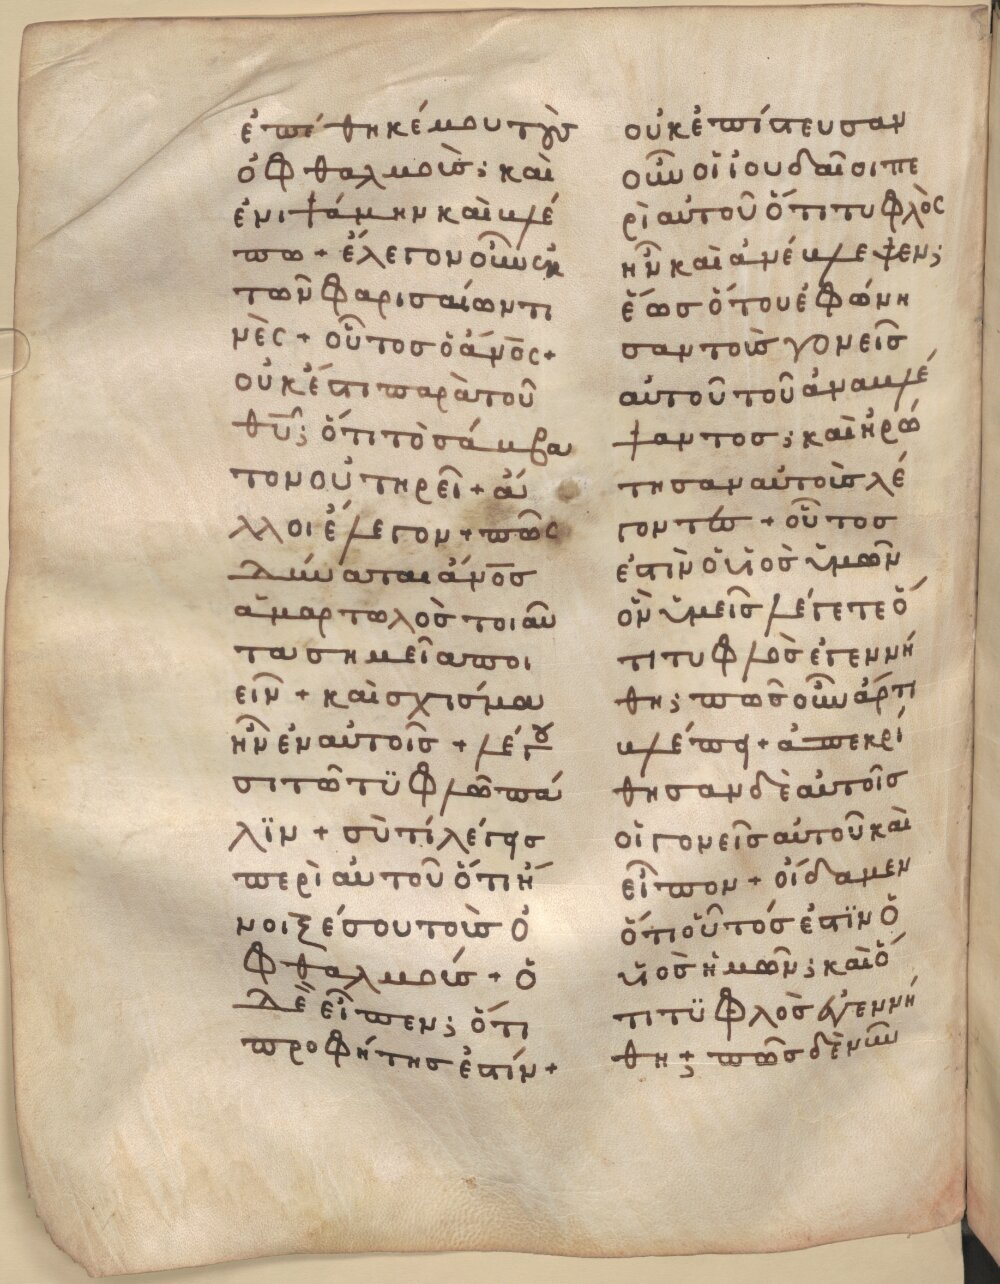 ἐπέθηκέ μου τοὺσ
ὀφθαλμοὺσ; καὶ
ἐνιψάμην καὶ βλέ
πω + ἔλεγον οὖν ἐκ
τῶν φαρισαίων τι
νὲς + οὗτοσ ὁ ἄνοσ +
οὐκ ἔστι παρὰ τοῦ
θῦ; ὅτι τὸ σάββα
τον οὐ τηρεῖ + ἄ
λλοι ἔλεγον + πῶς
δύναται ἄνοσ
ἁμαρτωλὸσ τοιαῦ
τα σημεῖα ποι
εῖν + καὶ σχίσμα
ἦν ἐν αὐτοῖσ + λέγου
σι τῶ τϋφλῶ πά
λϊν + σὺ τί λέγεισ
περὶ αὐτοῦ ὅτι ἤ
νοιξέ σου τοὺσ ὀ
φθαλμούσ + ὁ
δὲ εἶπεν; ὅτι
προφήτησ ἐστίν +
οὐκ ἐπίστευσαν
οὖν οἱ ἰουδαῖοι πε
ρὶ αὐτοῦ ὅτι τυφλὸς
ἦν καὶ ἀνέβλεψεν;
ἕωσ ὅτου ἐφώνη
σαν τοὺσ γονεῖσ
αὐτοῦ τοῦ ἀναβλέ
ψαντοσ; καὶ ἠρώ
τησαν αὐτοὺσ λέ
γοντεσ + οὗτοσ
ἐστὶν ὁ ὑιὸσ ὑμῶν
ὃν ὑμεῖσ λέγετε ὅ
τι τυφλὸσ ἐγεννή
θη; πῶσ οὖν ἄρτι
βλέπει + ἀπεκρί
θησαν δὲ αὐτοῖσ
οἱ γονεῖσ αὐτοῦ καὶ
εἶπον + οἴδαμεν
ὅτι οὗτόσ ἐστϊν ὁ
ὑιὸσ ἡμῶν; καὶ ὅ
τι τϋφλὸσ ἐγεννή
θη; πῶσ δὲ νῦν